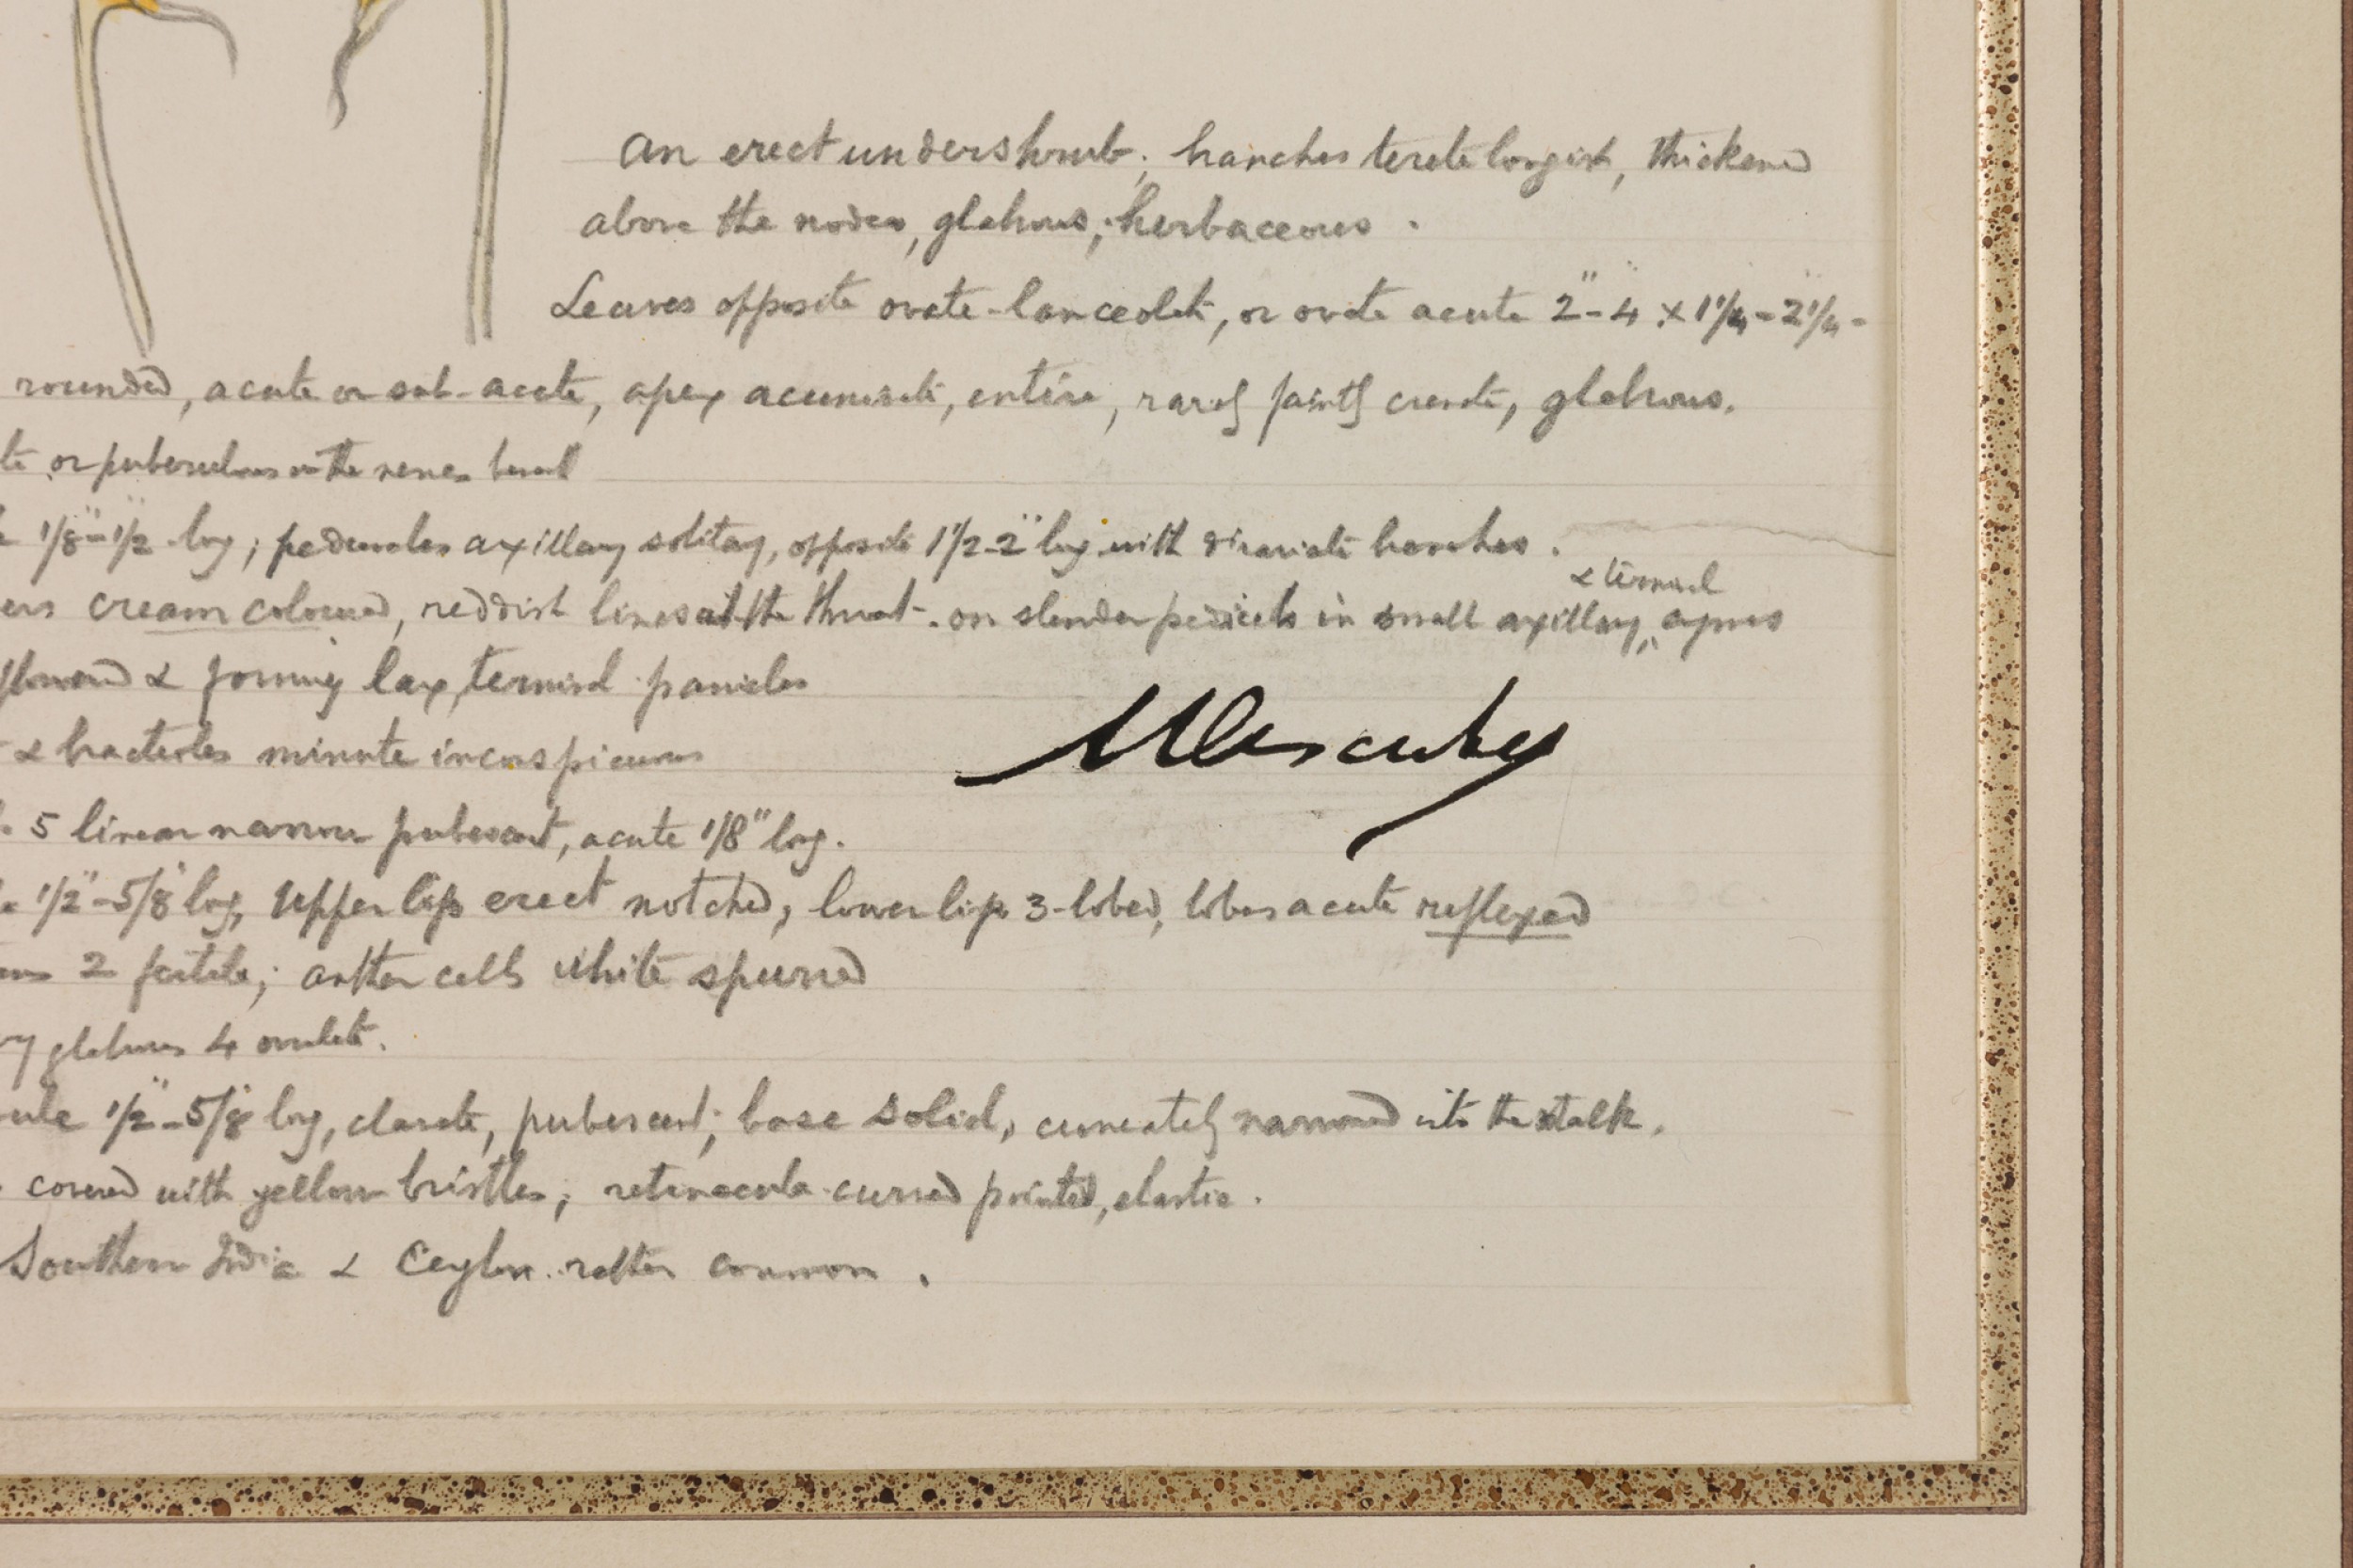 An erect undershrub; branches terete longish, thickened
above the nodes, glabrous; herbaceous.
Leaves opposite ovate-lanceolate, or ovate acute 2"-4" × 1 1/4"-2 1/4"-
rounded, acute or sub-acute, apex acuminate, entire, rarely faintly crenate, glabrous.
or puberulous on the nerves
1/8"-1/2" long; peduncles axillary solitary, opposite 1 1/2-2" long with divaricate branches.
& terminal
cream coloured, reddish lines at the throat. on slender pedicels in small axillary, cymes
& forming lax terminal panicles
& bracteoles minute inconspicuous
5 linear narrow pubescent, acute 1/8" long.
1/2"-5/8" long, upper lip erect notched, lower lip 3-lobed, lobes acute reflexed
2 fertile; anther cells white spurred
glabrous 4 ovulate.
1/2"-5/8" long, clavate, pubescent; base solid, cuneately narrowed into the stalk.
covered with yellow bristles; retinacula curved pointed, elastic.
Southern India & Ceylon. rather common.